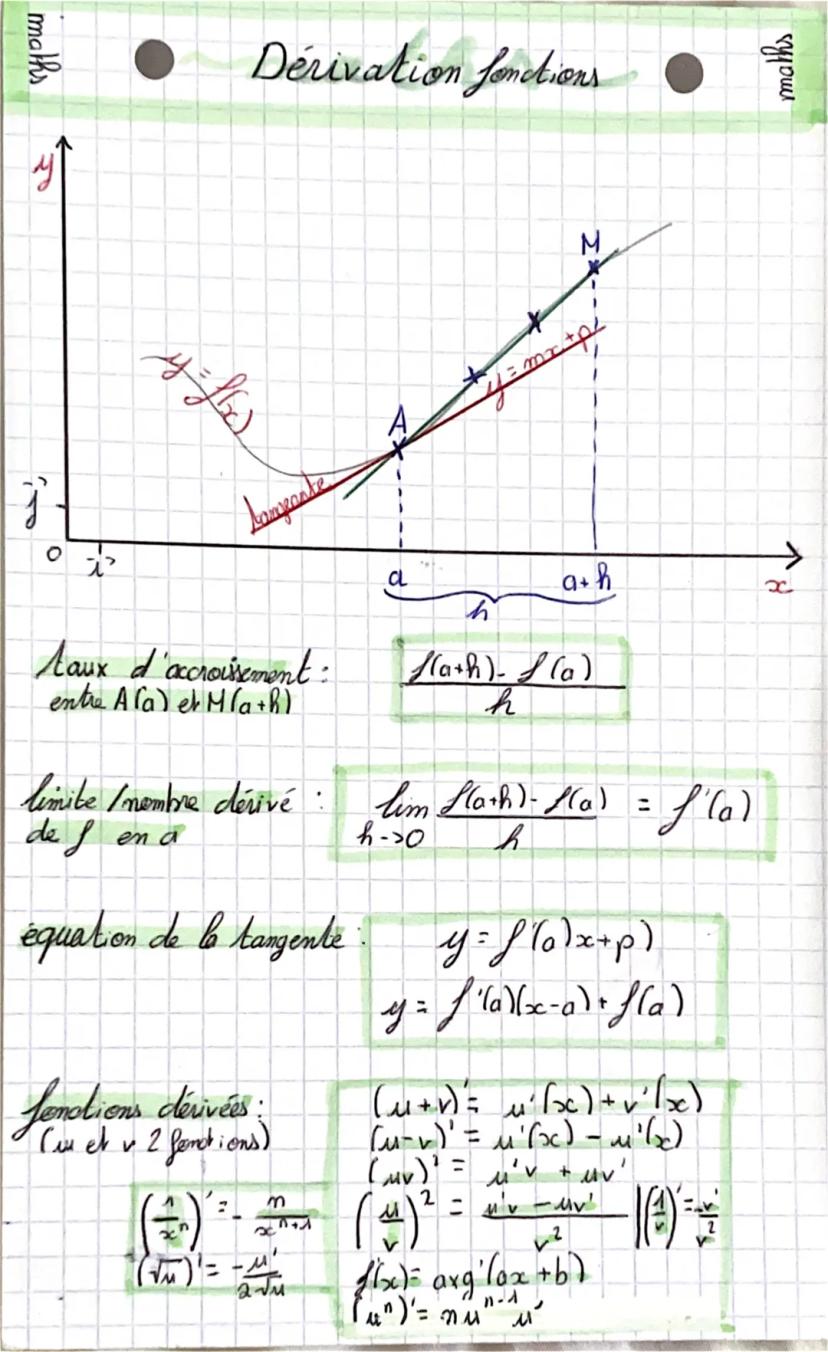 maths
Dérivation fonctions
maths
y
M
y = f(x)
y = mx + p
A
tangeante
j
0
i
a
a+h
x
h
taux d'accroissement :
entre A(a) et M(a+h)
f(a+h) - f(a)
h
limite / nombre dérivé :
de f en a
lim f(a+h) - f(a) = f'(a)
h->0 h
équation de la tangente :
y = f'(a)x+p)
y = f'(a)(x-a) + f(a)
fonctions dérivées :
(u et v 2 fonctions)
(u+v)' = u'(x) + v'(x)
(u-v)' = u'(x) - u'(x)
(uv)' = u'v + uv'
(u/v)² = u'v - uv' / v² || (1/v)' = -v'/v²
f'(x) = axg'(ax+b)
(uⁿ)' = nuⁿ⁻¹ u'
(1/xⁿ)' = - n/xⁿ⁺¹
(√u)' = -u'/2√u